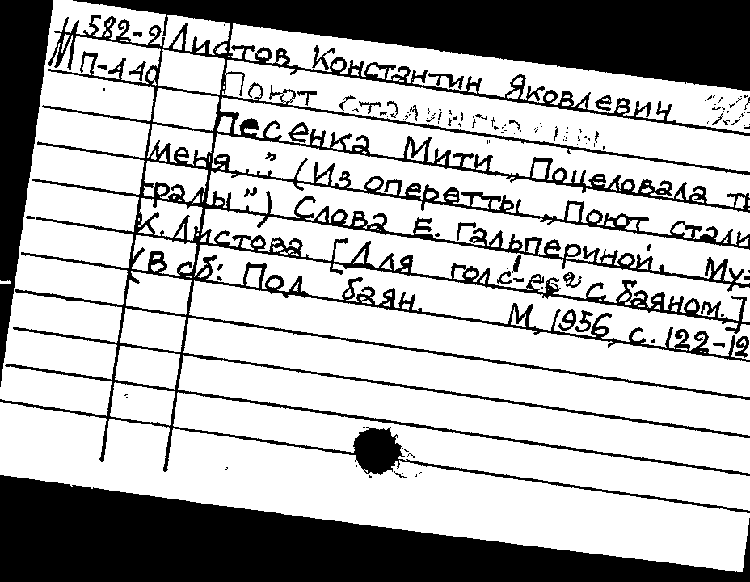 М 582-2 Листов, Константин Яковлевич.
П-440 Поют сталинградцы.
Песенка Мити „Поцеловала ты
меня,..." (Из оперетты „Поют стали
градцы".) Слова Е. Гальпериной. Муз
К. Листова. [Для голоса с баяном.]
(В сб: Под баян. М, 1956, с. 122-12